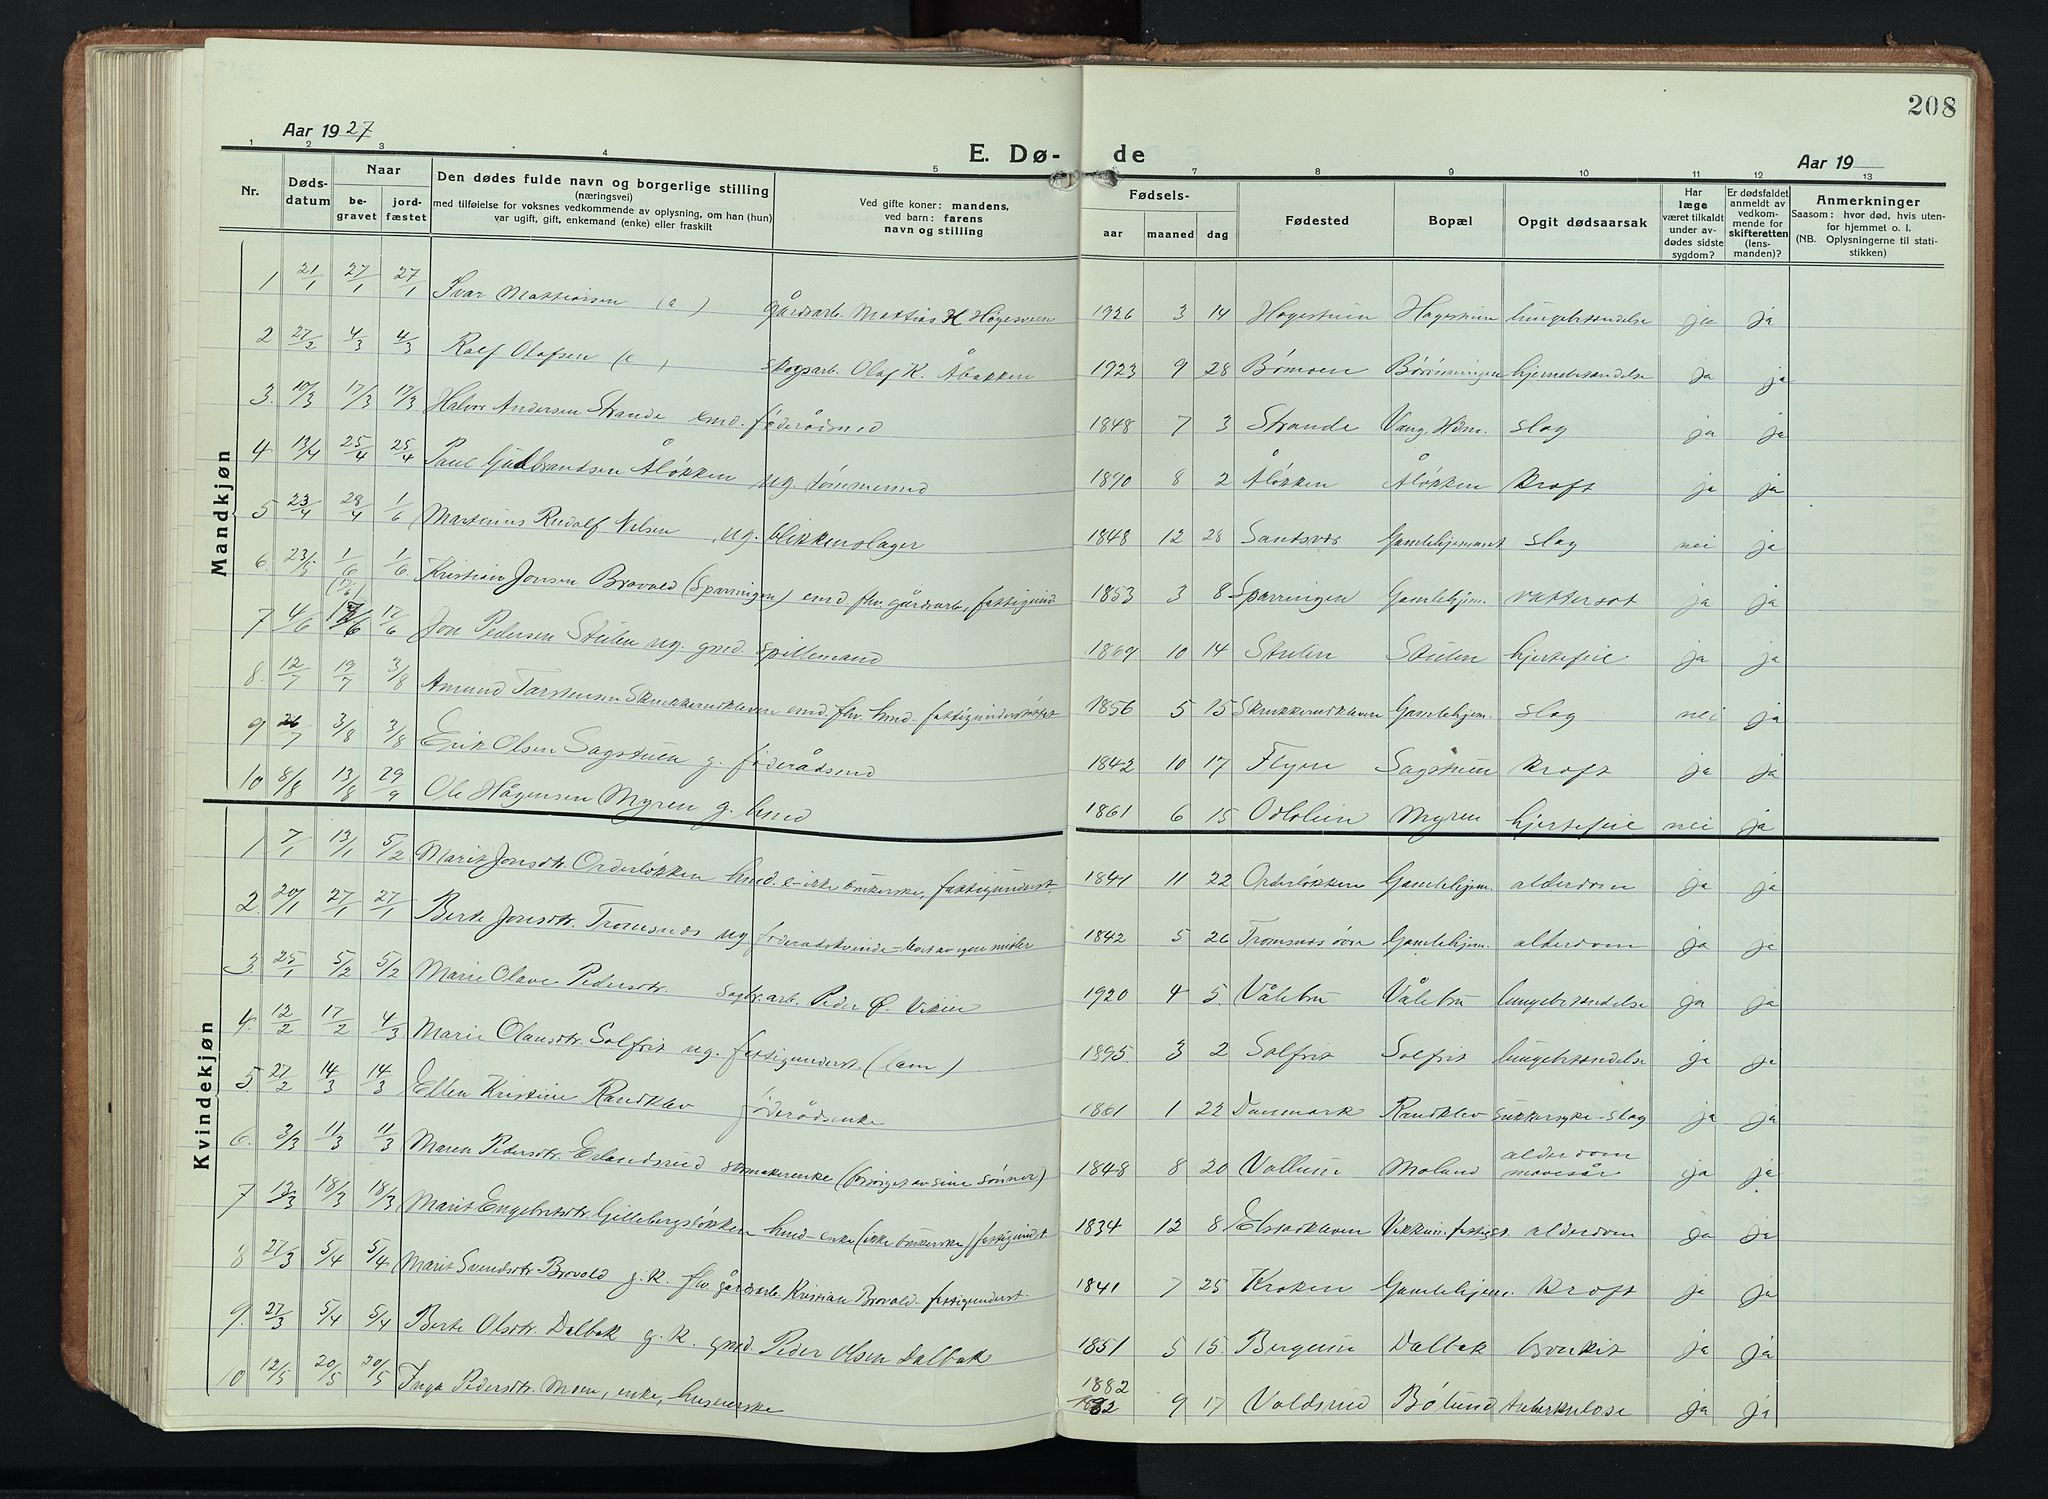 208
Aar 1927
E. Dø- de
Aar 19
1 2 3 4 5 7 8 9 10 11 12 13
Nr.
Døds-
datum
Naar
be-
gravet
jord-
fæstet
Den dødes fulde navn og borgerlige stilling
(næringsvei)
med tilføielse for voksnes vedkommende av oplysning, om han (hun)
var ugift, gift, enkemand (enke) eller fraskilt
Ved gifte koner: mandens,
ved barn: farens
navn og stilling
Fødsels-
aar maaned dag
Fødested
Bopæl
Opgit dødsaarsak
Har
læge
været tilkaldt
under av-
dødes sidste
sygdom?
Er dødsfaldet
anmeldt av
vedkom-
mende for
skifteretten
(lens-
manden)?
Anmerkninger
Saasom: hvor død, hvis uten-
for hjemmet o. l.
(NB. Oplysningerne til stati-
stikken)
Mandkjøn
1 21/1 27/1 27/1 Ivar Mattiasen gårdsarb. Mattias H Høgesveen 1926 3 14 Hagestuen Hagestuen lungebetændelse ja ja
2 27/2 4/3 4/3 Rolf Olafsen skogsarb. Olaf K. Åbakken 1923 9 28 Bømoen hjernebetændelse ja ja
3. 10/3 17/3 17/3 Halvor Andersen Strande emd. føderådsmd 1848 7 3 Strande Vang, Hdm. slag ja ja
4 13/4 25/4 25/4 Paul Gudbrandsen Åløkken ug. tømmermd 1890 8 2 Åløkken Åløkken kræft ja ja
5 23/4 28/4 1/6 Martinus Rudolf Nilsen, ug. blikkenslager 1848 12 28 Sandsvås Gamlehjemmet slag nei ja
6. 23/5 1/6 1/6 Kristian Jonsen Brovold (Sparringen) emd. fhv. gårdsarb., fattigund. 1853 3 8 Sparringen Gamlehjem. vattersot ja ja
7 4/6 (17/6) 17/6 17/6 Jon Pedersen Stulen ug. gmd. spillemand 1869 10 14 Stulen Stulen hjertefeil ja ja
8. 12/7 19/7 3/8 Amund Torstensen Skrukkerudkleven emd. fhv. hmd. fattigunderstøttet 1856 5 15 Skrukkerudkleven Gamlehjem. slag nei ja
9 26/7 3/8 3/8 Erik Olsen Sagstuen g. føderådsmd 1842 10 17 Flyen Sagstuen kræft ja ja
10 8/8 13/8 29/9 Ole Hågensen Myren g. hmd 1861 6 15 Odlolien Myren hjertefeil nei ja
Kvindekjøn
1 7/1 13/1 5/2 Marit Jonsdtr. Onderløkken hmd. e-ikke brukerske, fattigunderst. 1841 11 22 Onderløkken Gamlehjem. alderdom ja ja
2. 20/1 27/1 27/1 Berte Jonsdtr. Tromsnæs ug føderådskvinde - levet av egne midler 1842 5 26 Tromsnæs øvre Gamlehjem. alderdom ja ja
3. 25/1 5/2 5/2 Marie Olave Pedersdtr. sagbr. arb. Peder Ø. Viken 1920 4 5. Vålebru Vålebru lungebetændelse ja ja
4. 12/2 17/2 4/3 Marie Olausdtr. Solfrit ug. fattigunderst. (lam) 1895 3 2 Solfrit Solfrit lungebetændelse ja ja
5. 27/2 14/3 14/3 Ellen Kristine Randklev føderådsenke 1861 1 22 Danmark Randklev sukkersyke - slag ja ja
6. 3/3 11/3 11/3 Maren Pedersdtr. Erlandsrud skomakerenke (forsørget av sine sønner) 1848 8 20 Vollum Molund alderdom mavesår ja ja
7 13/3 18/3 18/3 Marit Engebretsdtr. Gillebergsløkken hmd - enke (ikke brukerske) fattigundst. 1834 12 8 Elstadkleven Vikkum. fattigst. alderdom ja ja
8 27/3 5/4 5/4 Marit Svendsdtr. Brovold g. k. fhv. gårdsarb. Kristian Brovold - fattigunderst. 1841 7 25 Kroken Gamlehjem. kræft ja ja
9. 27/3 5/4 5/4 Berte Olsdtr. Dalbak g. k. gmd. Peder Olsen Dalbak 1851 5 15. Bergum Dalbak bronkit ja ja
10 12/5 20/5 20/5 Inga Pedersdtr. Moen, enke, huseierske 1882 1882 9 17 Voldsrud Bølund tuberkulose ja ja